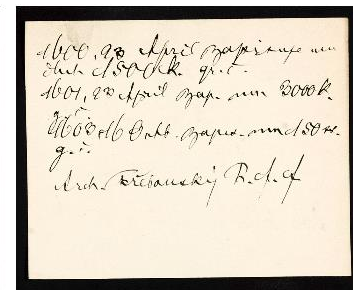 1600, 23 April zapisuje mu
dluh 1500 k. gr. č.
1601, 23 April zap. mu 3000 k.
g. č.
1603 16 Octb. zapis. mu 150 k.
g. č.
Arch. Třeboňský R. f. f